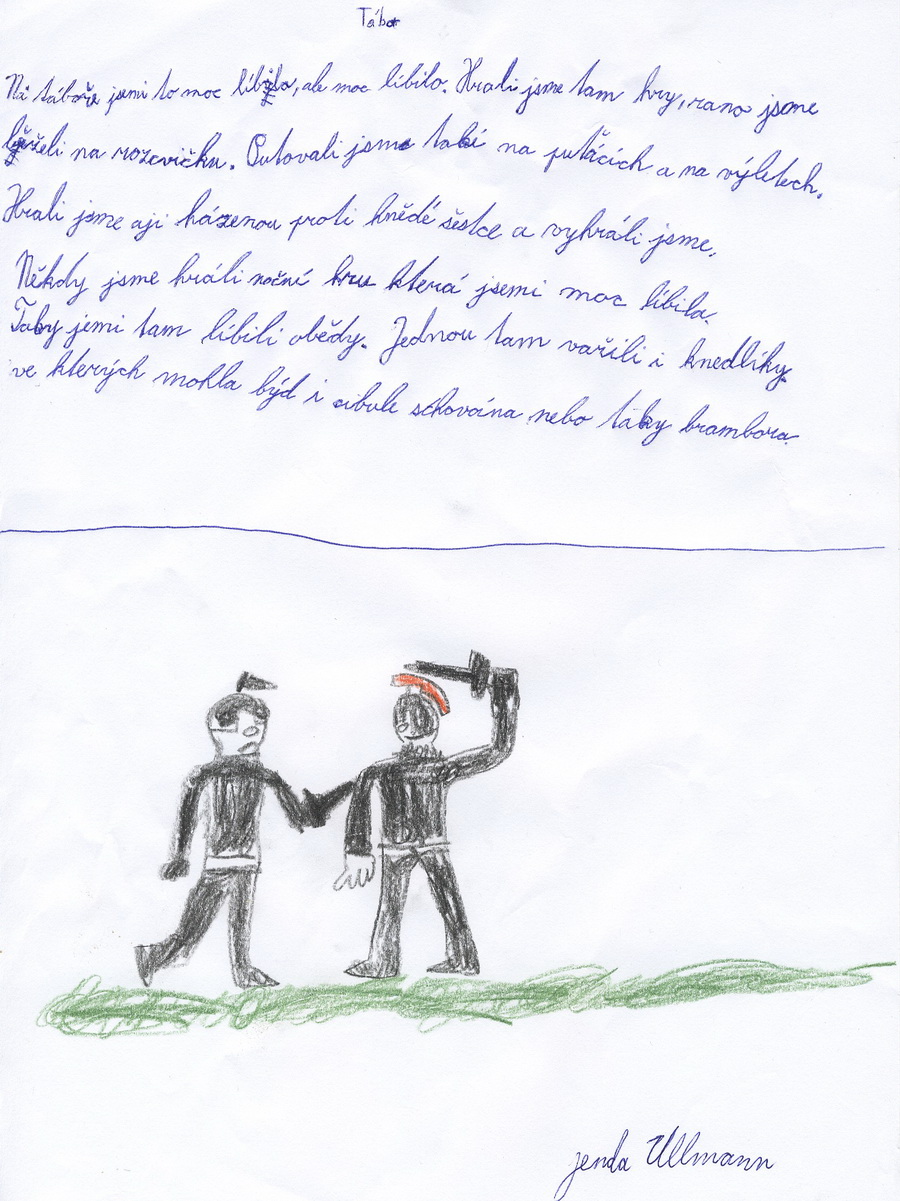 Tábor
Na táboře jsmi to moc líbilo, ale moc líbilo. Hrali jsme tam hry, rano jsme
běželi na rozcvičku. Putovali jsme také na puťácích a na výletech.
Hrali jsme aji házenou proti hnědé šestce a vyhráli jsme.
Někdy jsme hráli noční hru která jsemi moc líbila.
Taky jemi tam líbili obědy. Jednou tam vařili i knedlíky.
ve kterých mohla být i cibule schovaína nebo taky brambora.
jenda Ullmann